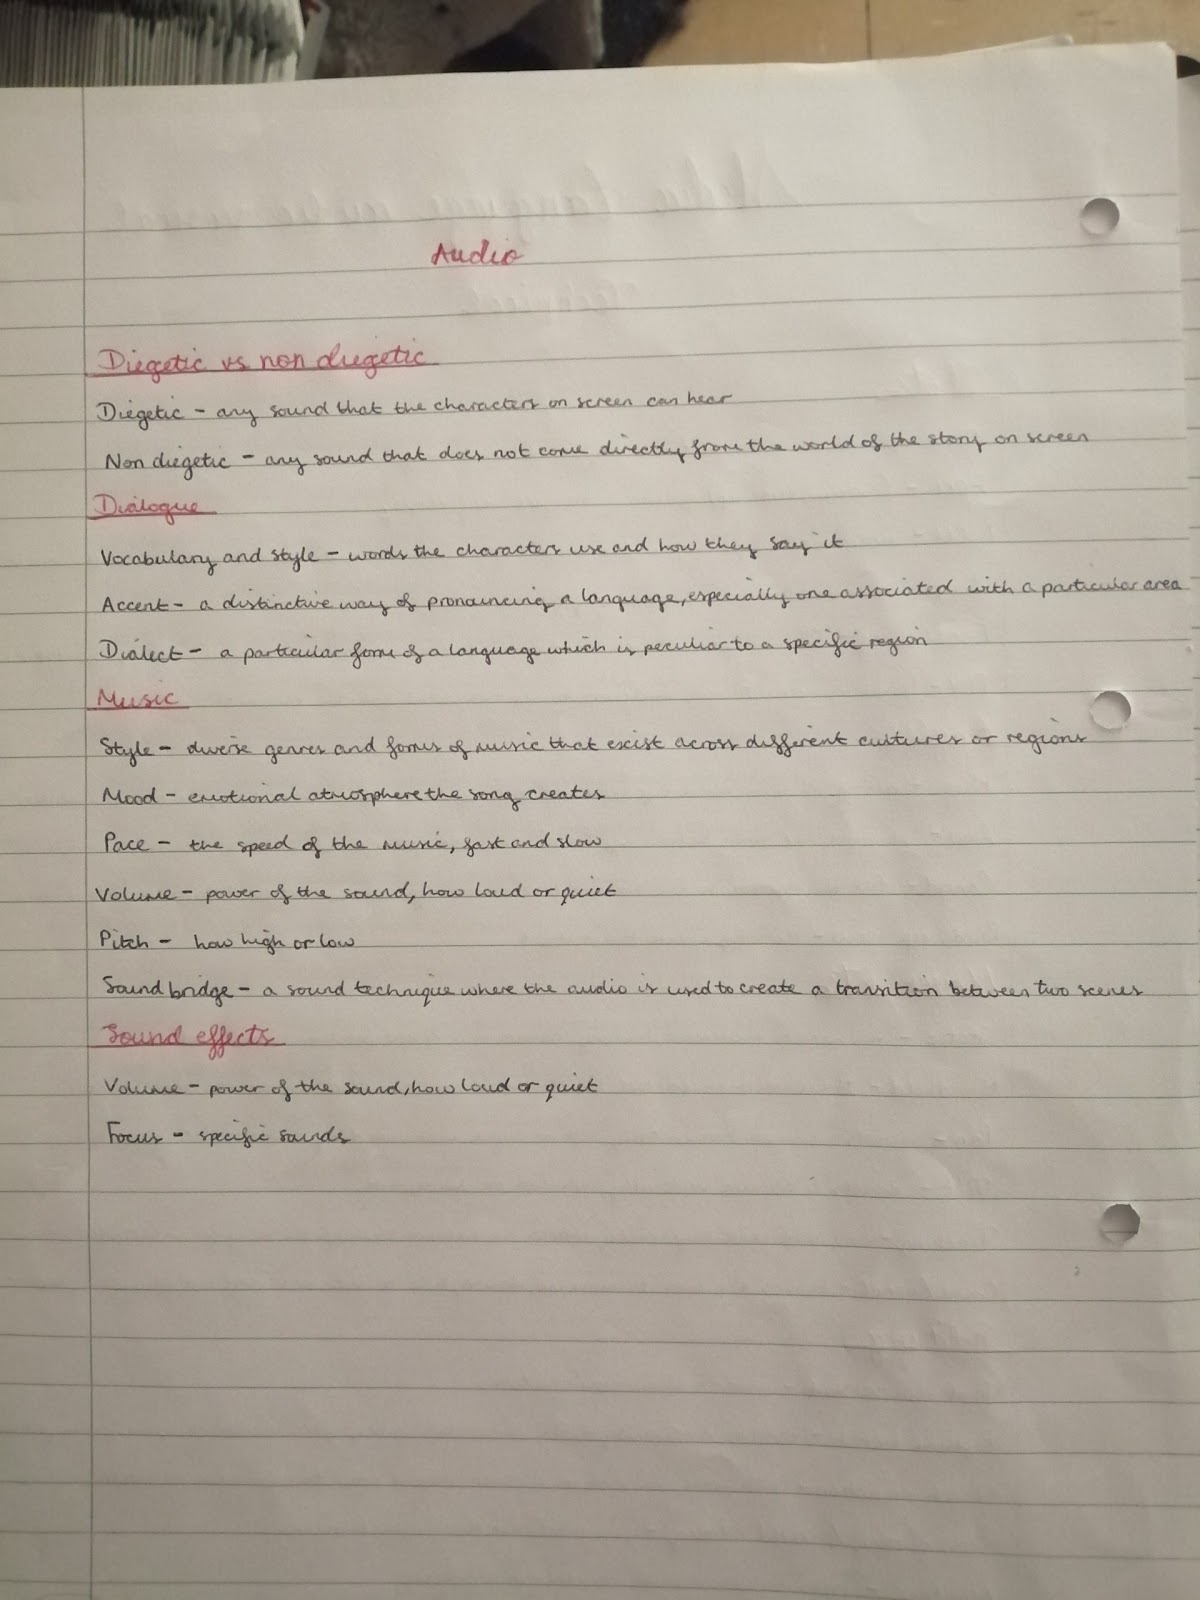 Audio
Diegetic vs non diegetic
Diegetic - any sound that the characters on screen can hear
Non diegetic - any sound that does not come directly from the world of the story on screen
Dialogue
Vocabulary and style - words the characters use and how they say it
Accent - a distinctive way of pronouncing a language, especially one associated with a particular area
Dialect - a particular form of a language which is peculiar to a specific region
Music
Style - diverse genres and forms of music that exist across different cultures or regions
Mood - emotional atmosphere the song creates
Pace - the speed of the music, fast and slow
Volume - power of the sound, how loud or quiet
Pitch - how high or low
Sound bridge - a sound technique where the audio is used to create a transition between two scenes
Sound effects
Volume - power of the sound, how loud or quiet
Focus - specific sounds